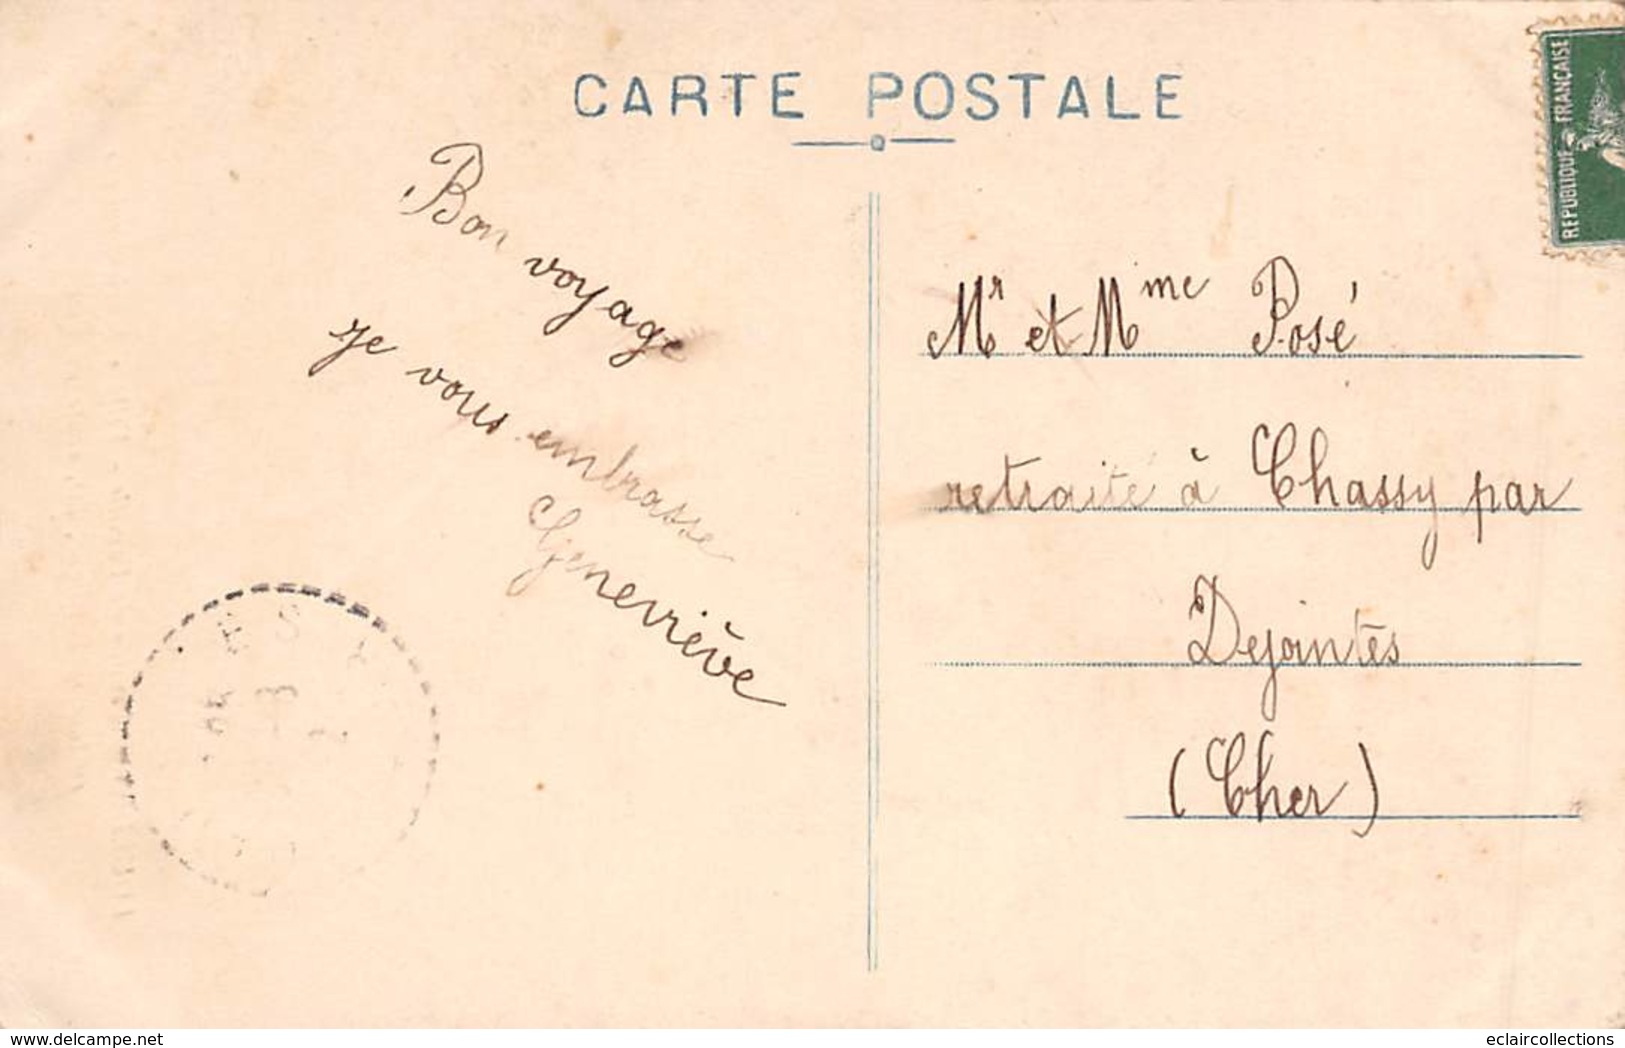 CARTE POSTALE
REPUBLIQUE FRANÇAISE
Bon voyage
je vous embrasse
Geneviève
Mr et Mme Posé
retraité à Chassy par
Dejointes
(Cher)
delcampe.net
eclaircollections